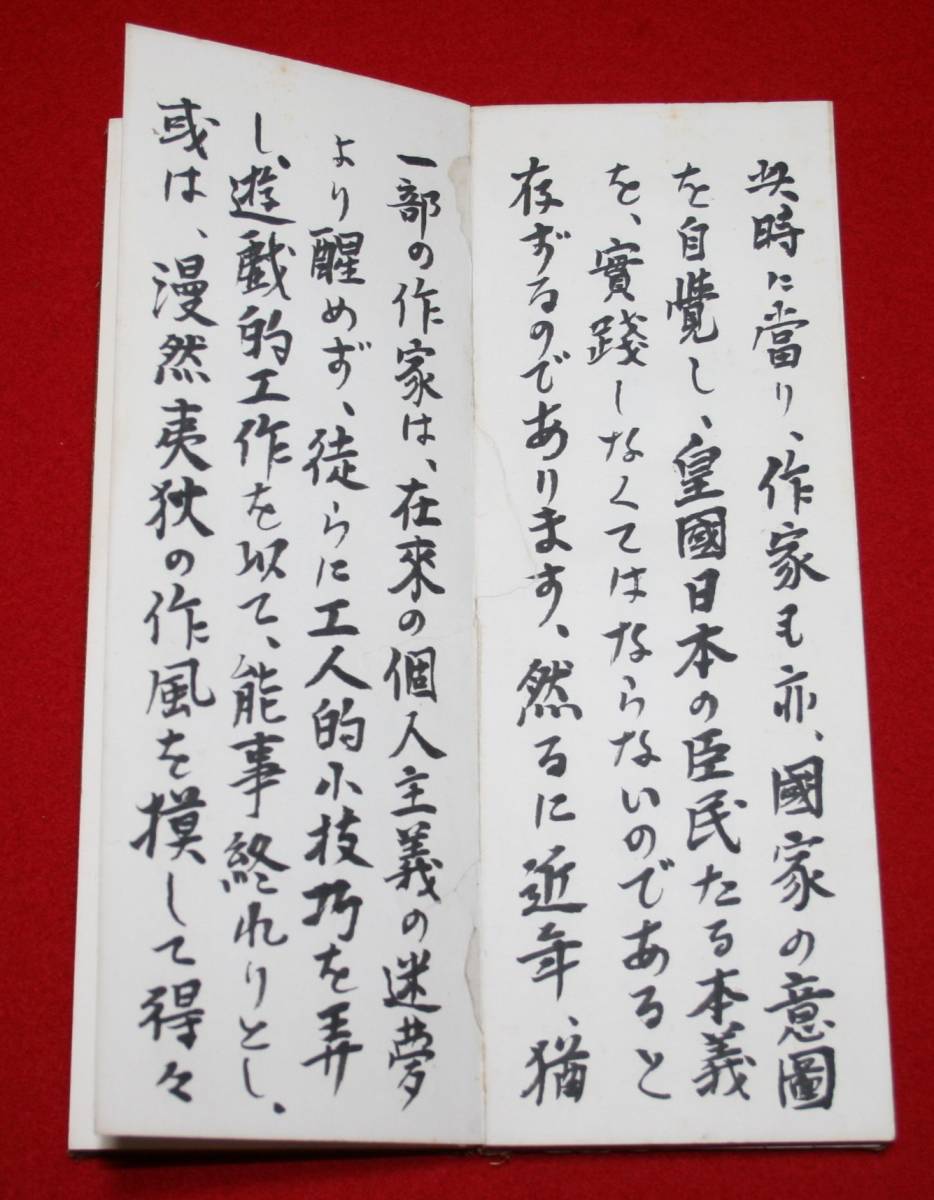 此時に當り、作家も亦、國家の意圖
を自覺し、皇國日本の臣民たる本義
を、實踐しなくてはならないのであると
存ずるのであります、然るに近年、猶
一部の作家は、在來の個人主義の迷夢
より醒めず、徒らに工人的小技巧を弄
し、遊戲的工作を以て、能事終れりとし、
或は、漫然夷狄の作風を摸して得々